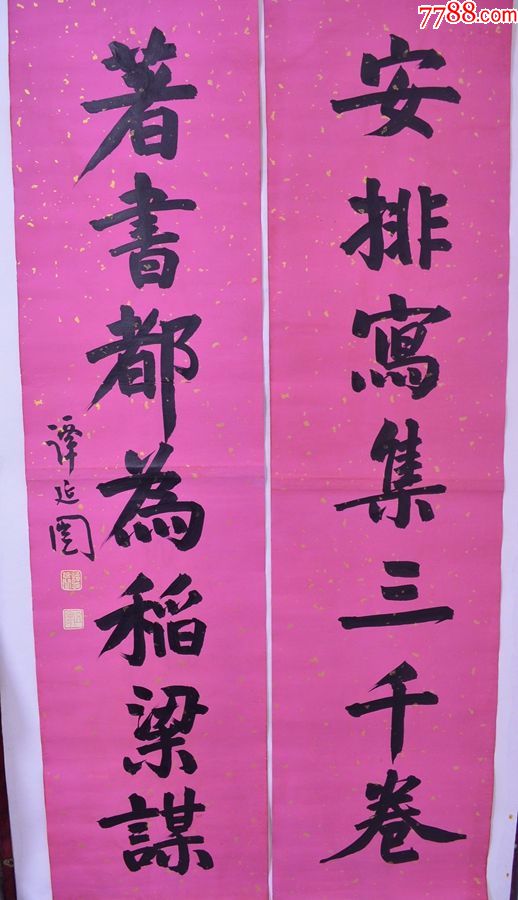 7788.com
安排寫集三千卷
著書都為稻梁謀
譚延闓